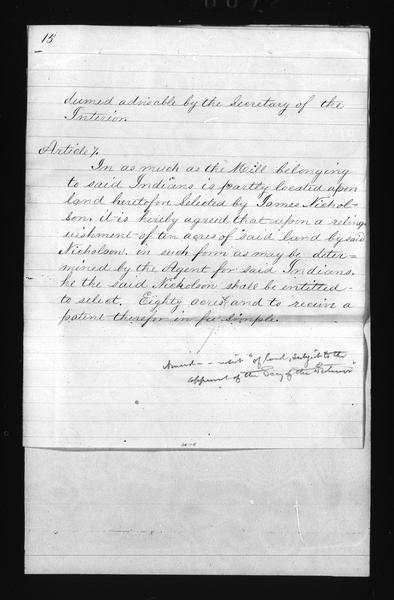 15
deemed advisable by the Secretary of the
Interior.
Article 7.
In as much as the Mill belonging
to said Indians is partly located upon
land heretofore Selected by James Nichol-
son. it is hereby agreed that upon a relinq-
uishment of ten acres of said land by said
Nicholson in such form as may be deter-
mined by the Agent for said Indians.
he the said Nicholson shall be entitled
to select, Eighty acres and to receive a
patent therefor in fee Simple.
Amend - - "of land, subject to the
approval of the Secy of the Interior"